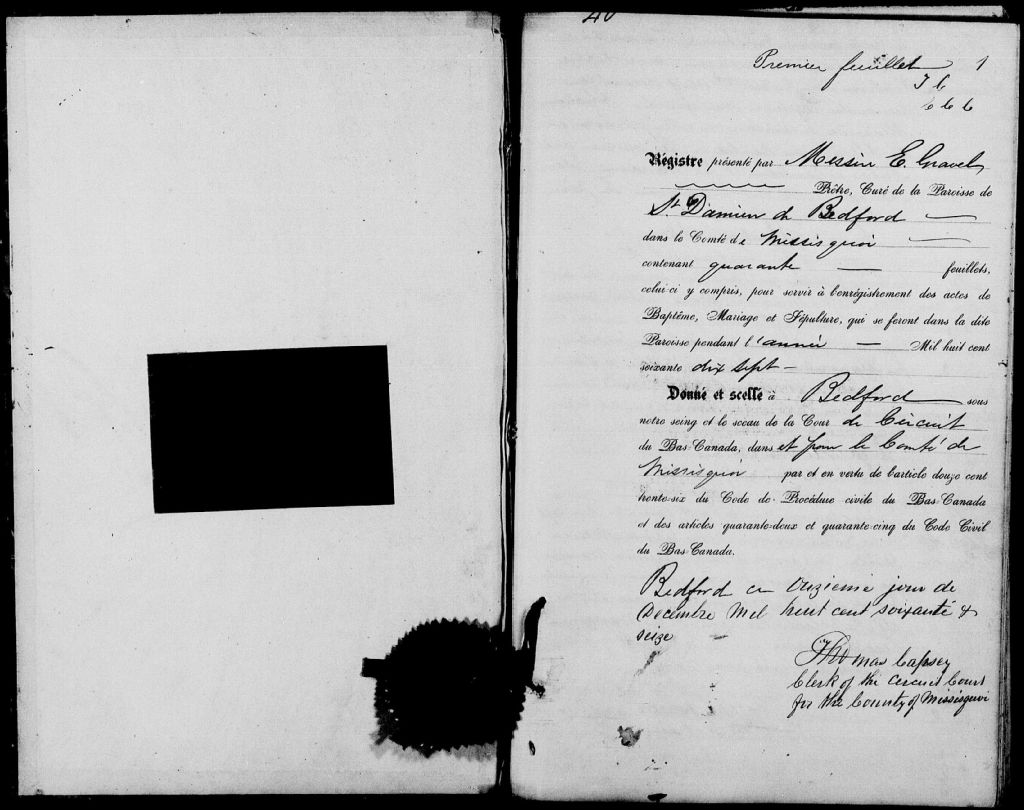 40
Premier feuillet 1
Régistre présenté par Messire E. Gravel
Prêtre, Curé de la Paroisse de
St. Damien de Bedford —
dans le Comté de Missisquoi —
contenant quarante — feuillets,
celui-ci y compris, pour servir à l'enrégistrement des actes de
Baptême, Mariage et Sépulture, qui se feront dans la dite
Paroisse pendant l'année — Mil huit cent
soixante dix sept —
Donné et scellé à Bedford sous
notre seing et le sceau de la Cour de Circuit
du Bas-Canada, dans et pour le Comté de
Missisquoi par et en vertu de l'article douze cent
trente-six du Code de Procédure civile du Bas-Canada
et des articles quarante-deux et quarante-cinq du Code Civil
du Bas-Canada.
Bedford ce onzieme jour de
Decembre Mil huit cent soixante &
seize
Thomas Capsey
Clerk of the Circuit Court
for the County of Missisquoi